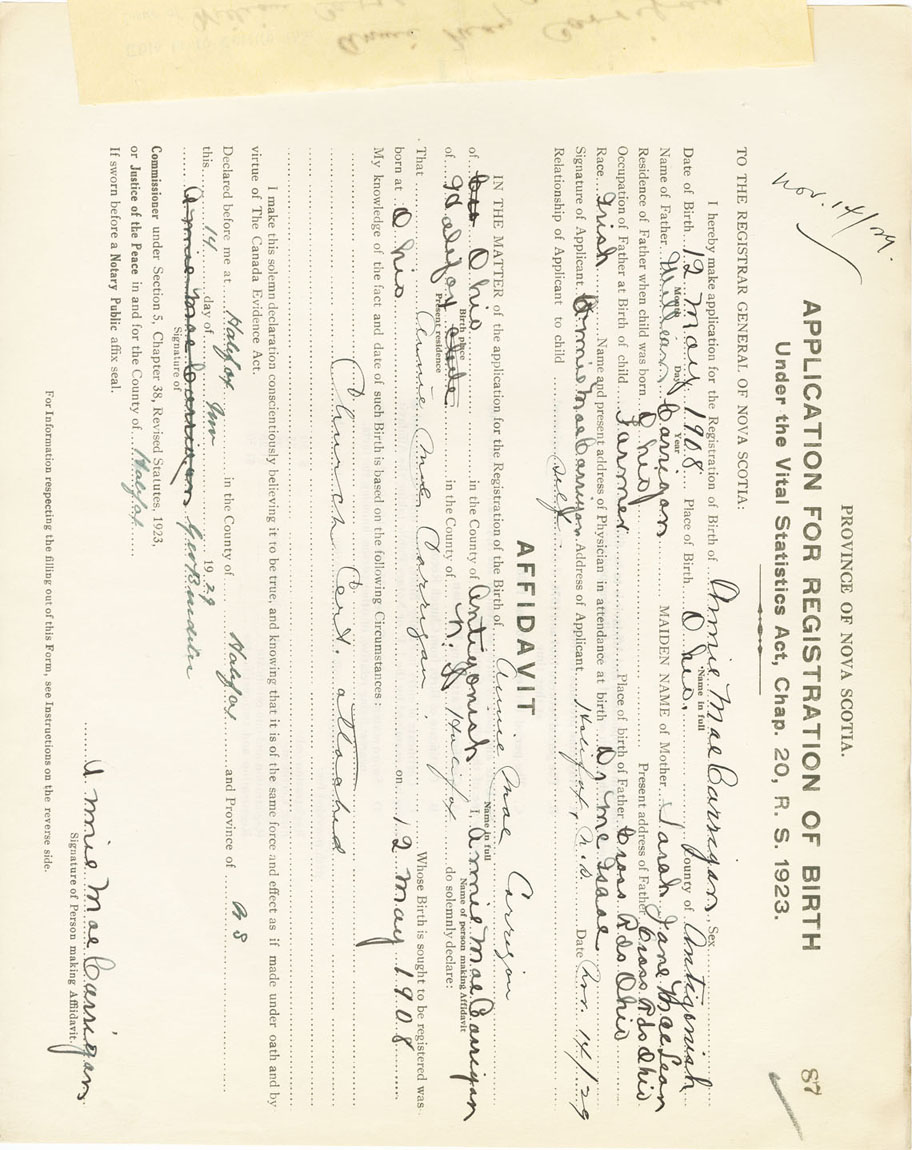 PROVINCE OF NOVA SCOTIA.
87
APPLICATION FOR REGISTRATION OF BIRTH
Under the Vital Statistics Act, Chap. 20, R. S. 1923.
Nov. 14/29.
TO THE REGISTRAR GENERAL OF NOVA SCOTIA:
I hereby make application for the Registration of Birth of Annie Mae Carrigan Sex
Name in full
Date of Birth 12 May 1908 Place of Birth Ohio, County of Antigonish
Month Day Year
Name of Father William Carrigan MAIDEN NAME of Mother Sarah Jane MacLean
Residence of Father when child was born Ohio Present address of Father Cross Rds Ohio
Occupation of Father at Birth of child Farmer Place of birth of Father Cross Rds Ohio
Race Irish Name and present address of Physician in attendance at birth Dr. McIsaac
Signature of Applicant Annie Mae Carrigan Address of Applicant Halifax, N.S. Date Nov. 14/29
Relationship of Applicant to child Self.
AFFIDAVIT
IN THE MATTER of the application for the Registration of the Birth of Annie Mae Carrigan
Name in full
of Ohio in the County of Antigonish I, Annie Mae Carrigan
Birth place
Name of person making Affidavit
of Halifax in the County of N. S Halifax do solemnly declare:
Present residence
That Annie Mae Carrigan Whose Birth is sought to be registered was
born at Ohio on 12 May 1908
My knowledge of the fact and date of such Birth is based on the following Circumstances:
Church Cert. attached
I make this solemn declaration conscientiously believing it to be true, and knowing that it is of the same force and effect as if made under oath and by
virtue of The Canada Evidence Act.
Declared before me at Halifax in the County of Halifax and Province of N S
this 14 day of Nov 1929
Annie Mae Carrigan
Signature of
Commissioner under Section 5, Chapter 38, Revised Statutes, 1923,
or Justice of the Peace in and for the County of Halifax
If sworn before a Notary Public affix seal.
Annie Mae Carrigan
Signature of Person making Affidavit.
For Information respecting the filling out of this Form, see Instructions on the reverse side.